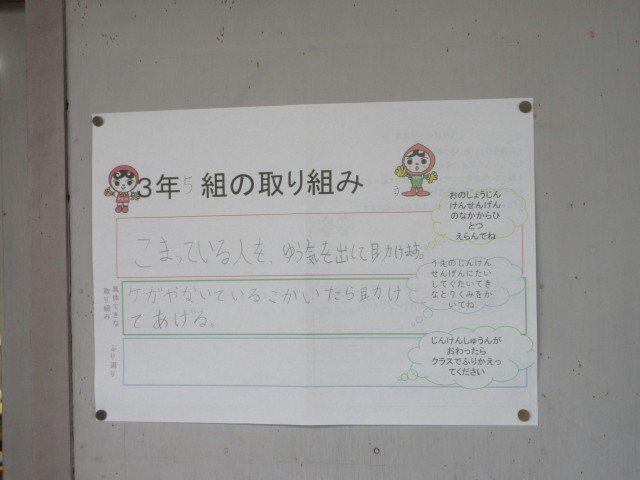 3年5組の取り組み
おのしょうじん
けんせんげん
のなかからひ
とつ
えらんでね
こまっている人を、ゆう気を出して助けます。
うえのじんけん
せんげんにたい
してぐたいてき
なとりくみをか
いてね
具体てきな
取り組み
ケガやないているこがいたら助け
てあげる。
ふり返り
じんけんしゅうんが
おわったら
クラスでふりかえっ
てください